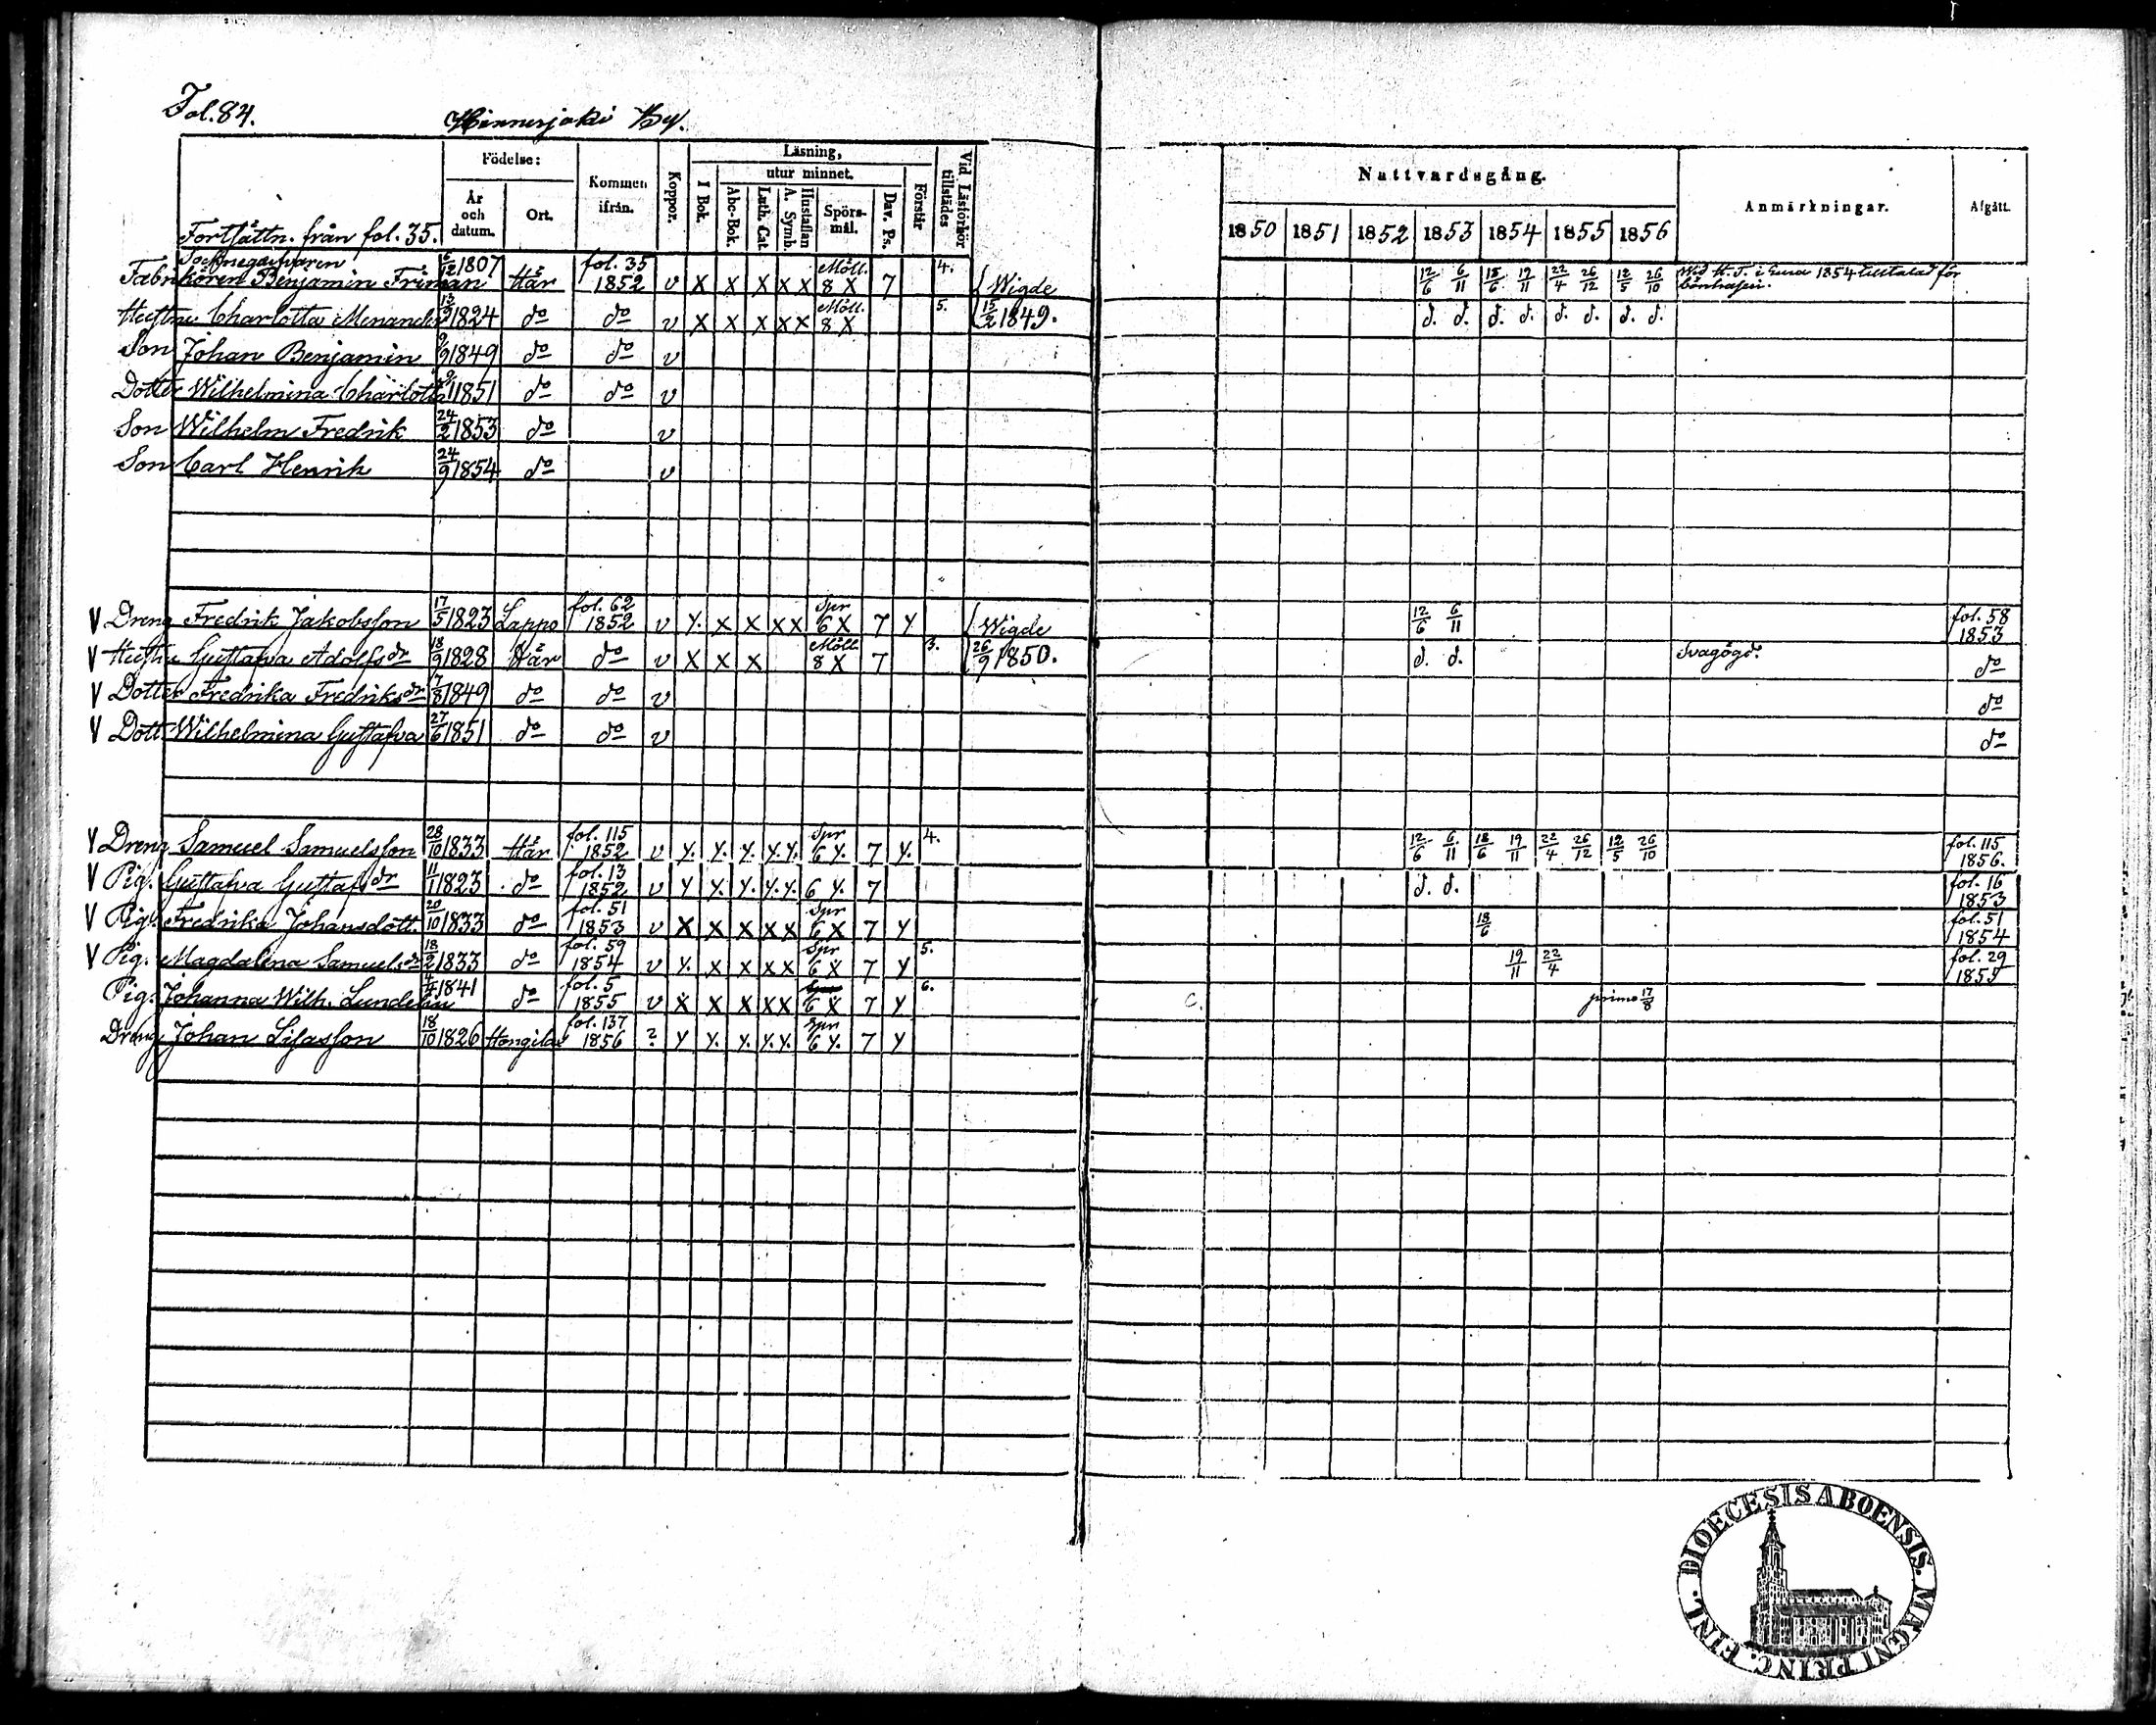 Fol. 84.
Hinnerjoki By.
Födelse:
År och datum.
Ort.
Kommen ifrån.
Koppor.
Läsning,
I Bok.
utur minnet.
Abc-Bok.
Luth. Cat.
A. Symb.
Hustaflan
Spörs-mål.
Dav. Ps.
Förstår
Vid Läsförhör tillstädes
Nattvardsgång.
1850 1851 1852 1853 1854 1855 1856
Anmärkningar.
Afgått.
Fortsättn. från fol. 35.
Socknegarfvaren
Fabrikören Benjamin Friman 6/12 1807 Här fol. 35 1852 v X X X X X Möll. 8 X 7 4. Wigde 12/6 6/11 18/6 19/11 22/4 26/12 12/5 26/10 Wid H. T. i Eura 1854 tilltalad för
Hustru Charlotta Menander 13/9 1824 do do v X X X X X Möll. 8 X 5. 15/2 1849. d. d. d. d. d. d. d. d.
Son Johan Benjamin 9/9 1849 do do v
Dotter Wilhelmina Charlotta 1851 do do v
Son Wilhelm Fredrik 24/2 1853 do v
Son Carl Henrik 24/9 1854 do v
V Dreng Fredrik Jakobsson 17/5 1823 Lappo fol. 62 1852 v Y. X X X X Spr 6 X 7 Y Wigde 12/6 6/11 fol. 58 1853
V Hustru Gustafva Adolfsdr 18/9 1828 Här do v X X X Möll. 8 X 7 3. 26/9 1850. d. d. Svagögd. do
V Dotter Fredrika Fredriksdr 7/8 1849 do do v do
V Dott. Wilhelmina Gustafva 27/6 1851 do do v do
V Dreng Samuel Samuelsson 28/10 1833 Här fol. 115 1852 v Y. Y. Y. Y. Y. Spr 6 Y. 7 Y. 4. 12/6 6/11 18/6 19/11 22/4 26/12 12/5 26/10 fol. 115 1856.
V Pig. Gustafva Gustafsdr 11/11 1823 do fol. 13 1852 v Y Y. Y. Y. Y. 6 Y. 7 d. d. fol. 16 1853
V Pig. Fredrika Johansdott. 20/10 1833 do fol. 51 1853 v X X X X X Spr 6 X 7 Y 18/6 fol. 51 1854
V Pig. Magdalena Samuelsdr 18/2 1833 do fol. 59 1854 v Y. X X X X Spr 6 X 7 Y 5. 19/11 22/4 fol. 29 1855
Pig. Johanna Wilh. Lundelin 4/4 1841 do fol. 5 1855 v X X X X X 6 X 7 Y 6. C. primo 17/8
Dreng Johan Lisasson 18/10 1826 Hongilax fol. 137 1856 ? Y Y. Y. Y. Y. Spr 6 Y. 7 Y
DIOECESIS ABOENSIS. MAGNI PRINC. FINL.